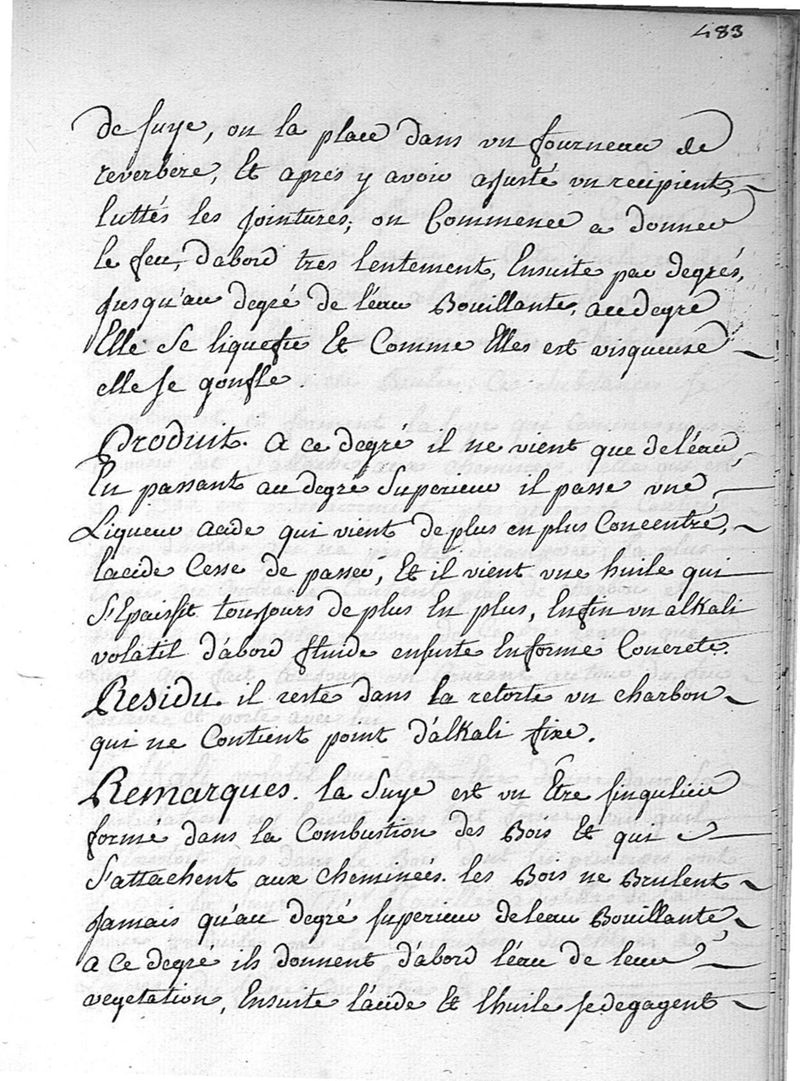 483
de suye, on la place dans un fourneau de
reverbere, Et apres y avoir ajusté un recipient,
luttés les jointures, on Commence a donner
le feu, d'abord tres lentement, Ensuite par degrés,
jusqu'au degré de l'éau Bouillante, au degré
Elle se liquefie Et Comme Elles est visqueuse
elle se gonfle.
Produit. a ce degré il ne vient que de l'éau,
En passant au degré Superieur il passe une
Liqueur acide qui vient de plus en plus Concentré,
l'acide Cesse de passer, Et il vient une huile qui
S'Epaissit toujours de plus En plus, Enfin un alkali
volatil d'abord fluide ensuite En forme Concrete.
Residu. il reste dans la retorte un charbon
qui ne Contient point d'alkali fixe.
Remarques. la Suye est un Être singulier
forme dans la Combustion des Bois Et qui
s'attachent aux cheminées. les Bois ne Brulent
jamais qu'au degré superieur de leau Bouillante,
a ce degre ils donnent d'abord l'éau de leur
vegetation, Ensuite l'acide Et l'huile se degagent